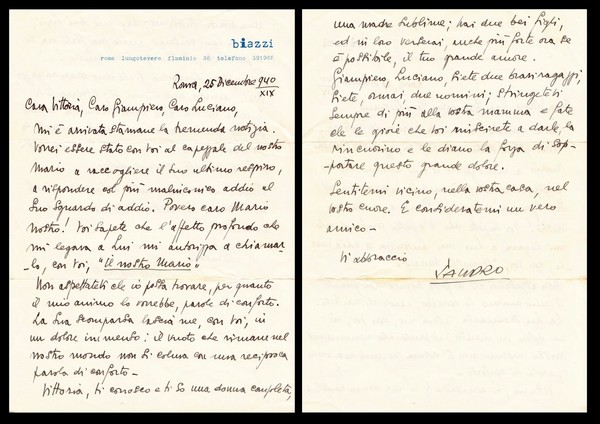 biazzi
roma lungotevere flaminio 36 telefono 391965
Roma, 25 Dicembre 940
XIX
Cara Vittoria, Caro Giampiero, Caro Luciano,
Mi è arrivata stamane la tremenda notizia.
Vorrei essere stato con voi al capezzale del nostro
Mario a raccogliere il suo ultimo respiro,
a rispondere col più malinconico addio al
suo sguardo di addio. Povero caro Mario
nostro! Voi sapete che l'affetto profondo che
mi legava a lui mi autorizza a chiamar-
lo, con voi, "il nostro Mario".
Non aspettatevi che io possa trovare, per quanto
il mio animo lo vorrebbe, parole di conforto.
La sua scomparsa lascia me, con voi, in
un dolore immenso: il vuoto che rimane nel
nostro mondo non si colma con una reciproca
parola di conforto -
Vittoria, ti conosco e ti so una donna completa,
una madre sublime; hai due bei figli,
ed in loro verserai, anche più forte ora se
è possibile, il tuo grande amore.
Giampiero, Luciano, siete due bravi ragazzi,
siete, ormai, due uomini; stringetevi
sempre di più alla vostra mamma e fate
che le gioie che voi riuscirete a darle, la
rincuorino e le diano la forza di sop-
portare questo grande dolore.
Sentitemi vicino, nella vostra casa, nel
vostro cuore. E consideratemi un vero
amico -
Vi abbraccio
SANDRO